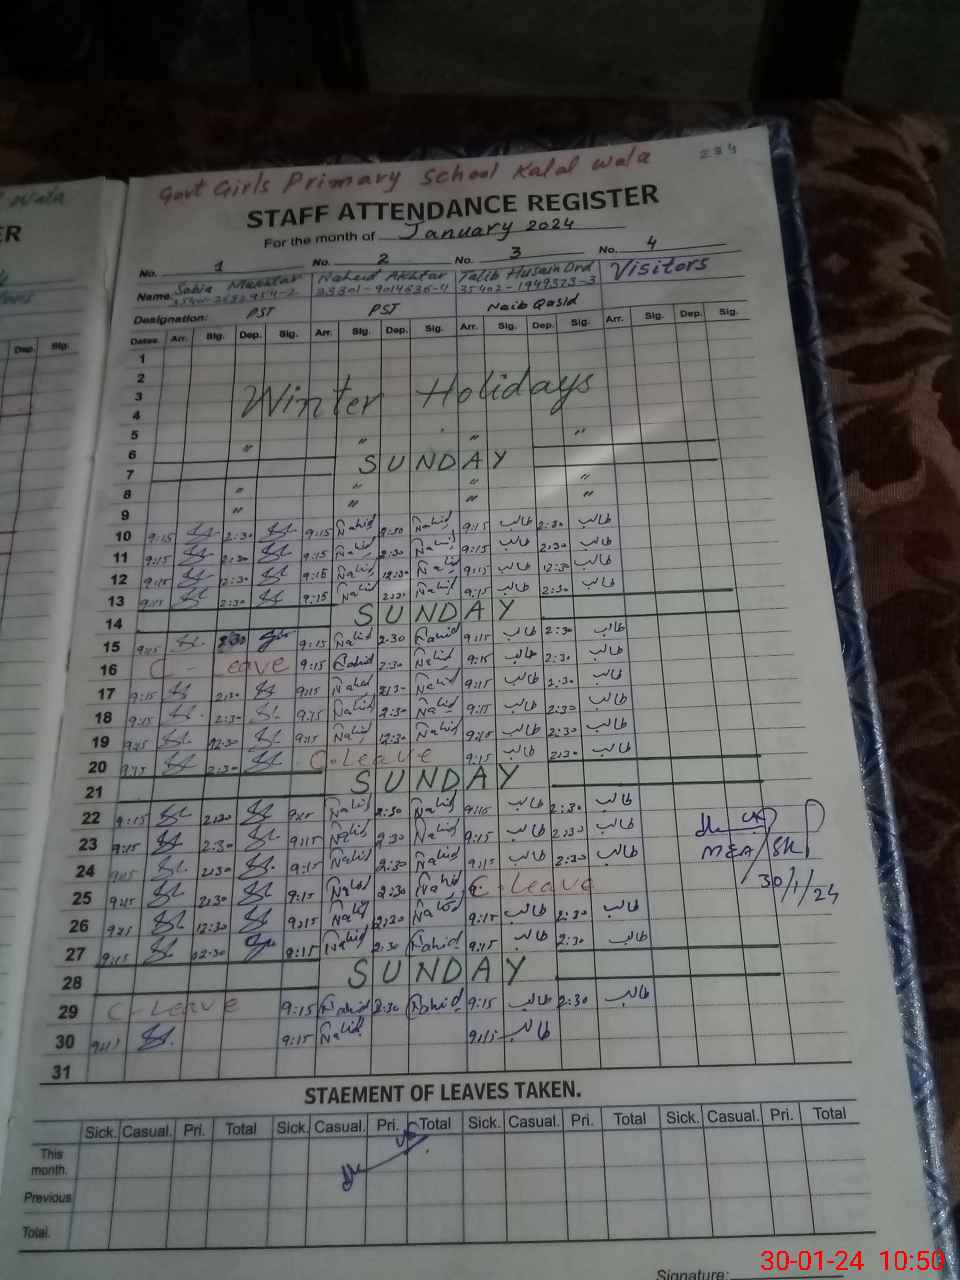 234
Govt Girls Primary School Kalal Wala
STAFF ATTENDANCE REGISTER
For the month of January 2024
No. 1 No. 2 No. 3 No. 4
Name Sobia Mukhtar Nahid Akhtar Talib Husain Visitors
35402-1949373-3
Designation: PST PST Naib Qasid
Dates. Arr. Sig. Dep. Sig. Arr. Sig. Dep. Sig. Arr. Sig. Dep. Sig. Arr. Sig. Dep. Sig.
1
2
3 Winter Holidays
4
5
6 " " " "
7 SUNDAY
8 " " " "
9 " " " "
10 9:15 2:30 9:15 Nahid 2:30 Nahid 9:15 طالب 2:30 طالب
11 9:15 2:30 9:15 Nahid 2:30 Nahid 9:15 طالب 2:30 طالب
12 9:15 12:30 9:15 Nahid 12:30 Nahid 9:15 طالب 12:30 طالب
13 9:15 2:30 9:15 Nahid 2:30 Nahid 9:15 طالب 2:30 طالب
14 SUNDAY
15 9:15 2:30 9:15 Nahid 2:30 Nahid 9:15 طالب 2:30 طالب
16 C - Leave 9:15 Nahid 2:30 Nahid 9:15 طالب 2:30 طالب
17 9:15 2:30 9:15 Nahid 2:30 Nahid 9:15 طالب 2:30 طالب
18 9:15 2:30 9:15 Nahid 2:30 Nahid 9:15 طالب 2:30 طالب
19 9:15 12:30 9:15 Nahid 12:30 Nahid 9:15 طالب 2:30 طالب
20 9:15 2:30 C-Leave 9:15 طالب 2:30 طالب
21 SUNDAY
22 9:15 2:30 9:15 Nahid 2:30 Nahid 9:15 طالب 2:30 طالب
23 9:15 2:30 9:15 Nahid 2:30 Nahid 9:15 طالب 2:30 طالب
24 9:15 2:30 9:15 Nahid 2:30 Nahid 9:15 طالب 2:30 طالب
25 9:15 2:30 9:15 Nahid 2:30 Nahid C-Leave
26 9:15 12:30 9:15 Nahid 12:30 Nahid 9:15 طالب 2:30 طالب
27 9:15 2:30 9:15 Nahid 2:30 Nahid 9:15 طالب 2:30 طالب
28 SUNDAY
29 C-Leave 9:15 Nahid 2:30 Nahid 9:15 طالب 2:30 طالب
30 9:15 Nahid 9:15 طالب
31
MEA/SKP
30/1/24
STAEMENT OF LEAVES TAKEN.
Sick. Casual. Pri. Total Sick. Casual. Pri. Total Sick. Casual. Pri. Total Sick. Casual. Pri. Total
This month.
Previous
Total.
Signature:
30-01-24 10:50